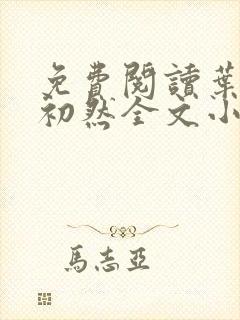 免費閱讀葉
初然全文小
馬志亞